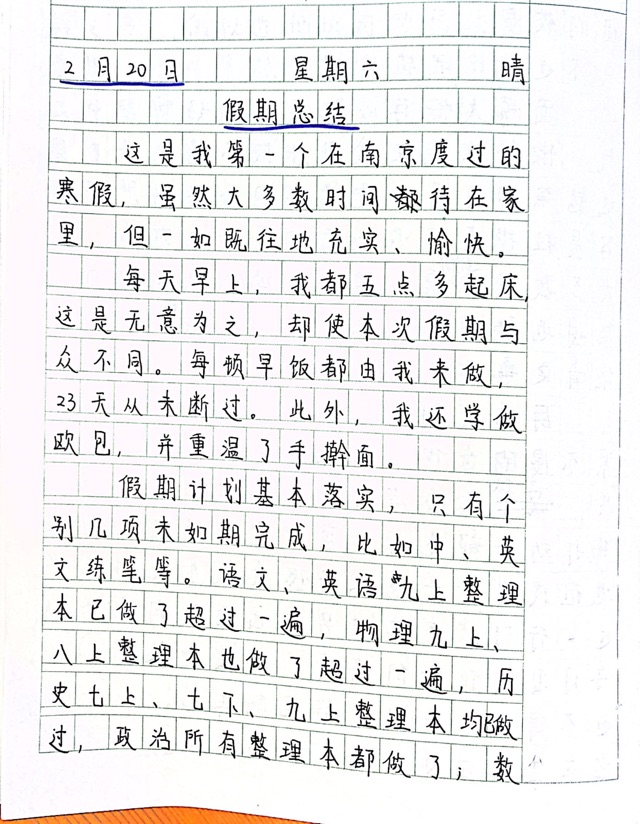 2月20日 星期六 晴
假期总结
这是我第一个在南京度过的
寒假，虽然大多数时间都待在家
里，但一如既往地充实、愉快。
每天早上，我都五点多起床，
这是无意为之，却使本次假期与
众不同。每顿早饭都由我来做，
23天从未断过。此外，我还学做
欧包，并重温了手擀面。
假期计划基本落实，只有个
别几项未如期完成，比如中、英
文练笔等。语文、英语九上整理
本已做了超过一遍，物理九上、
八上整理本也做了超过一遍，历
史七上、七下、九上整理本均已做
过，政治所有整理本都做了；数